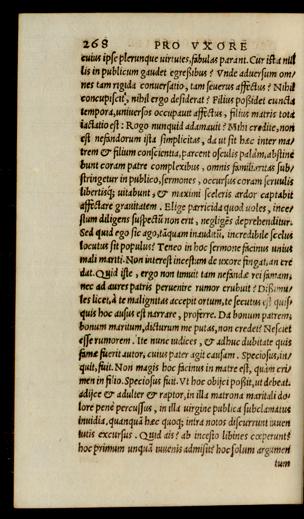 268 PRO VXORE
cuius ipse plerunque uirtutes, fabulas parant. Cur ista nul
lis in publicum gaudet egreßibus? Vnde aduersum om/
nes tam rigida conuersatio, tam seuerus affectus? Nihil
concupiscit, nihil ergo desiderat? Filius poßidet cuncta
tempora, uniuersos occupauit affectus, filius matris tota
iactatio est: Rogo nunquid adamauit? Mihi credite, non
est nefandorum ista simplicitas, da ut sit hæc inter ma/
trem & filium conscientia, parcent osculis palàm, abstine
bunt coram patre complexibus, omnis familiaritas sub/
stringetur in publico, sermones, occursus coram seruulis
libertisq; uitabunt, & maximi sceleris ardor captabit
affectare grauitatem. Elige parricida quod uoles, ince/
stum diligens suspectũ non erit, negligẽs deprehenditur.
Sed quid ego sic ago, tãquam inauditũ, incredibile scelus
locutus sit populus? Teneo in hoc sermone facinus unius
mali mariti. Non interest incestum de uxore fingat, an cre
dat. Quid iste, ergo non timuit tam nefandæ rei famam,
nec ad aures patris peruenire rumor erubuit?
les licet, à te malignitas accepit ortum, te secutus est quis/
quis hoc ausus est narrare, proferre. Da bonum patrem,
bonum maritum, dicturum me putas, non credet? Nesciet
esse rumorem. Ite nunc iudices, & adhuc dubitate quis
famæ fuerit autor, cuius pater agit causam. Speciosus, in/
quit, fuit. Non magis hoc facinus in matre est, quàm cri/
men in filio. Speciosus fuit. Vt hoc obijci poßit, ut debeat.
adijce & adulter & raptor, in illa matrona maritali do/
lore pene percussus, in illa uirgine publica subclamatus
inuidia, quanquã hæc quoq; intra notos discurrunt iuuen
tutis excursus. Quid ais? ab incesto libines cœperunt?
hoc primum unquã iuuenis admisit? hoc solum argumen
tum